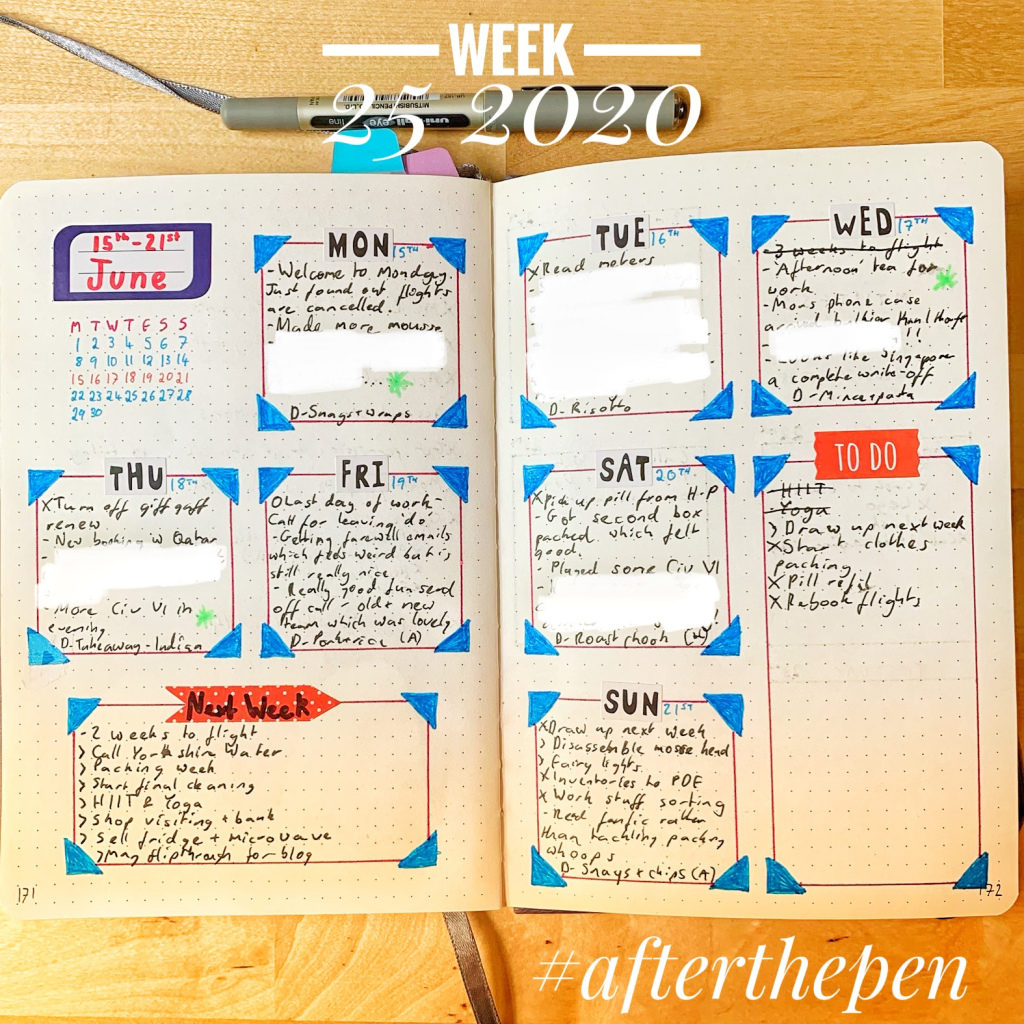 WEEK
25 2020
MITSUBISHI PENCIL CO.LTD
uni-ball eye
line
15th-21st
June
M T W T F S S
1 2 3 4 5 6 7
8 9 10 11 12 13 14
15 16 17 18 19 20 21
22 23 24 25 26 27 28
29 30
MON 15TH
-Welcome to Monday.
Just found out flights
are cancelled.
-Made more mousse
...
D-Snags+wraps
TUE 16TH
XRead meters
D-Risotto
WED 17TH
-3 weeks to flight
-Afternoon tea for
work
-Mons phone case
arrived
!!
-Looks like Singapore
a complete write-off
D-Mince+pasta
THU 18TH
XTurn off giff gaff
renew
-New booking w Qatar
-
-More Civ VI in
evening
D-Takeaway-Indian
FRI 19TH
OLast day of work-
Call for leaving do
-Getting farewell emails
which feels weird but is
still really nice
-Really good fun send
off call - old + new
team which was lovely
(A)
SAT 20TH
XPick up pill from H-P
-Got second box
packed which felt
good.
-Played some Civ VI
-
!
D-Roast chook
SUN 21ST
XDraw up next week
> Disassemble moose head
> Fairy lights
XInventories to POE
X Work stuff sorting
-Read fanfic rather
than tackling packing
whoops
D-Snags+chips (A)
TO DO
-HIIT
-Yoga
> Draw up next week
XStart clothes
packing
XPill refil
XRebook flights
Next Week
-2 weeks to flight
> Call Yorkshire Water
> Packing week
> Start final cleaning
> HIIT & Yoga
> Shop visiting + bank
> Sell fridge + microwave
>May flipthrough for blog
171
172
#afterthepen